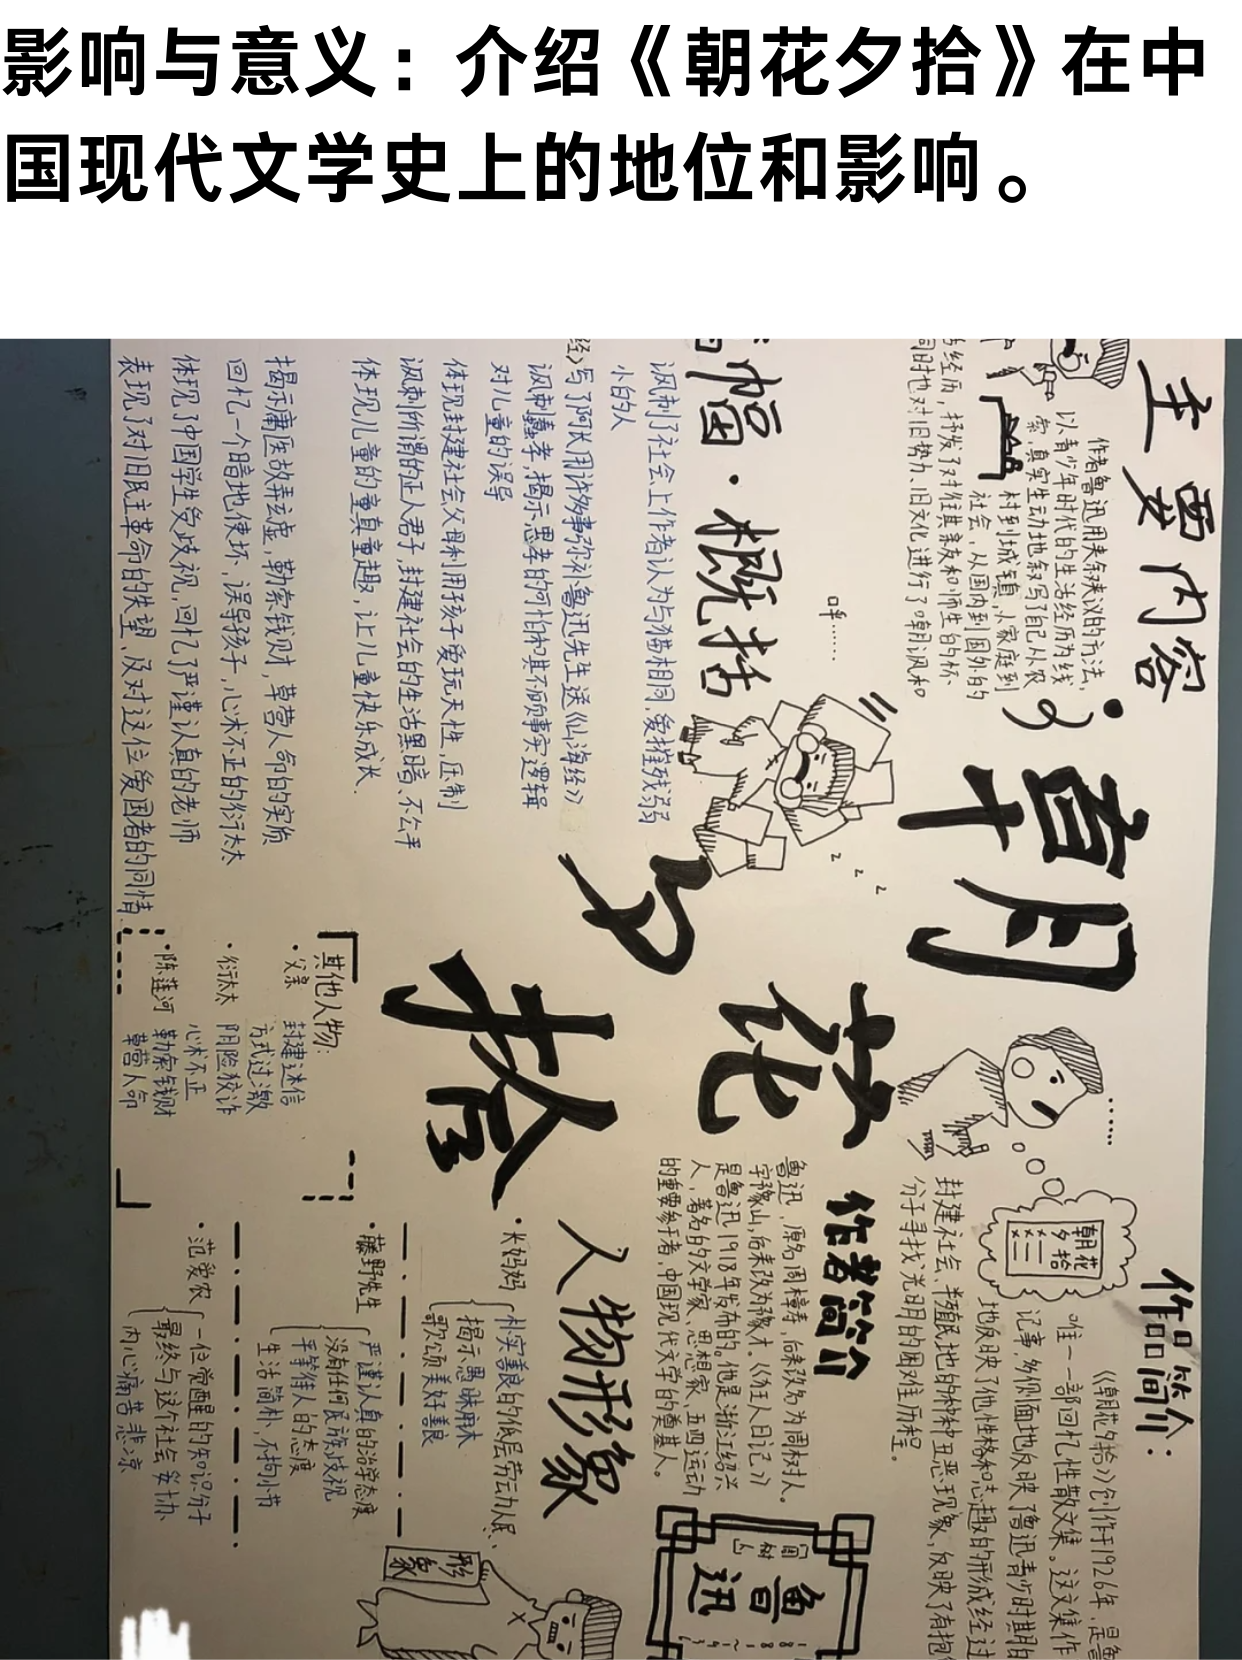 影响与意义：介绍《朝花夕拾》在中
国现代文学史上的地位和影响。
主要内容
作者鲁迅用夹叙夹议的方法，
以青少年时代的生活经历为线
索，真实生动地叙写了自己从农
村到城镇，从家庭到
社会，从国内到国外的
经历，抒发了对往昔亲友和师生的怀
同时也对旧势力、旧文化进行了嘲讽和
朝
花
夕
拾
呼……
z z z
幅·概括
讽刺了社会上作者认为与猫相同，爱摧残弱
小的人
经》写了阿长用许多事弥补鲁迅先生送《山海经》
讽刺蠢孝，揭示愚孝的可怕和其不顾事实逻辑
对儿童的误导
体现封建社会父母利用孩子爱玩天性，压制
讽刺所谓的正人君子，封建社会的生活黑暗、不公平
体现儿童的童真童趣，让儿童快乐成长.
揭示庸医故弄玄虚，勒索钱财，草菅人命的实质
回忆一个暗地使坏，误导孩子，心术不正的衍太太
体现了中国学生受歧视，回忆了严谨认真的老师
表现了对旧民主革命的失望、及对这位爱国者的同情.
作品简介：
《朝花夕拾》创作于1926年，是鲁
唯一一部回忆性散文集。这文集作
记事，多侧面地反映了鲁迅青少时期的
地反映了他性格和志趣的形成经过
封建社会、半殖民地的种种丑恶现象，反映了有抱
分子寻找光明的困难历程。
……
朝花
夕拾
作者简介
鲁迅，原名周樟寿，后来改名为周树人。
字豫山，后来改为豫才。《狂人日记》
是鲁迅1918年发布的。他是浙江绍兴
人，著名的文学家、思想家、五四运动
的重要参与者，中国现代文学的奠基人。
周树人
鲁迅
人物形象
·长妈妈
朴实善良的低层劳动人民
揭示愚昧麻木
歌颂美好善良
·藤野先生
严谨认真的治学态度
没有任何民族歧视
平等待人的态度
生活简朴，不拘小节
·范爱农
一位觉醒的知识分子
最终与这个社会妥协
内心痛苦悲凉
形象
其他人物：
·父亲 封建迷信
方式过激
·衍太太 阴险狡诈
心术不正
·陈莲河 勒索钱财
草菅人命